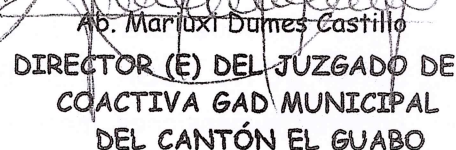 Ab. Mariuxi Dumes Castillo
DIRECTOR (E) DEL JUZGADO DE
COACTIVA GAD MUNICIPAL
DEL CANTÓN EL GUABO